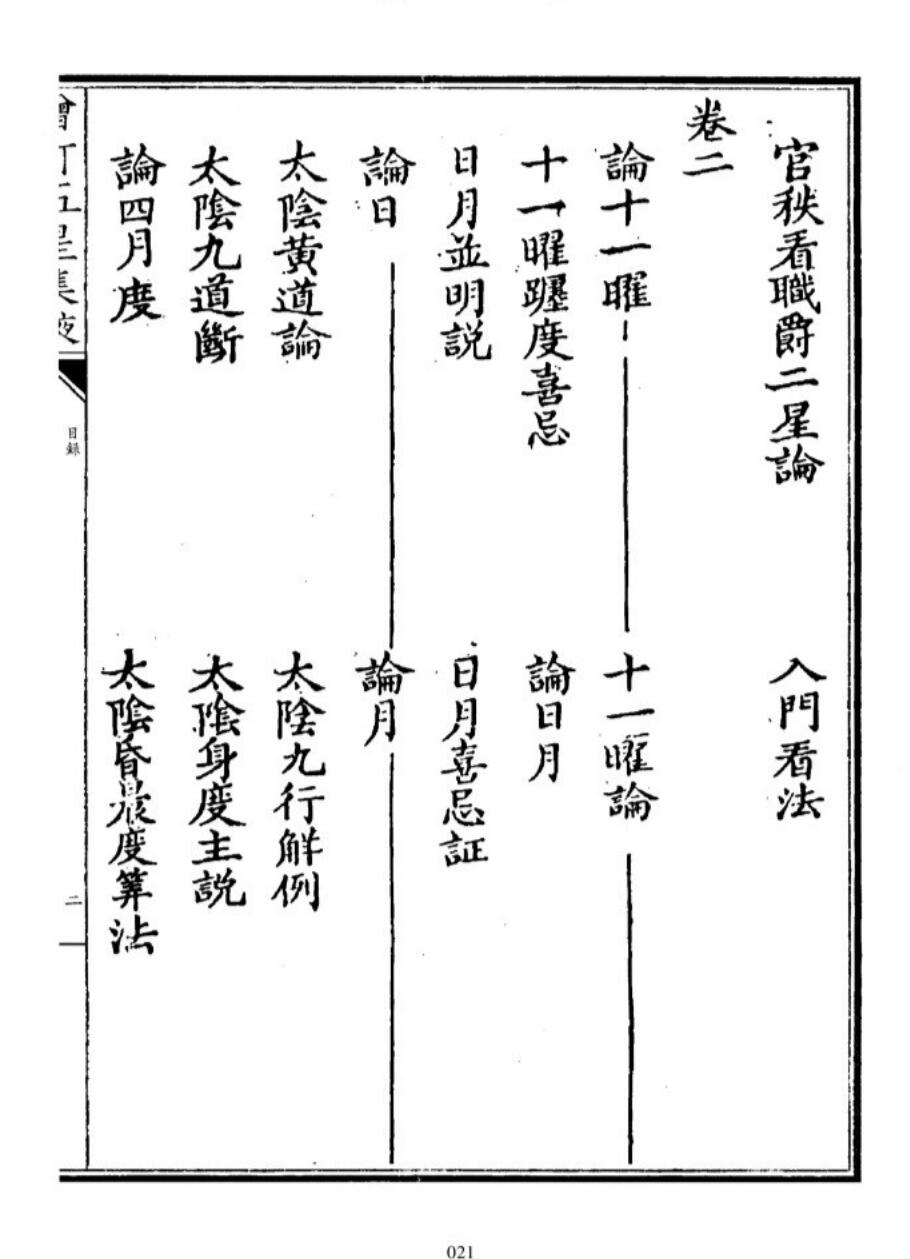 官秩看職爵二星論　入門看法
卷二
論十一曜　十一曜論
十一曜躔度喜忌　論日月
日月並明説　日月喜忌証
論日　論月
太陰黄道論　太陰九行解例
太陰九道斷　太陰身度主説
論四月度　太陰昏晨度筭法
增訂五星集腋
目録
二
021